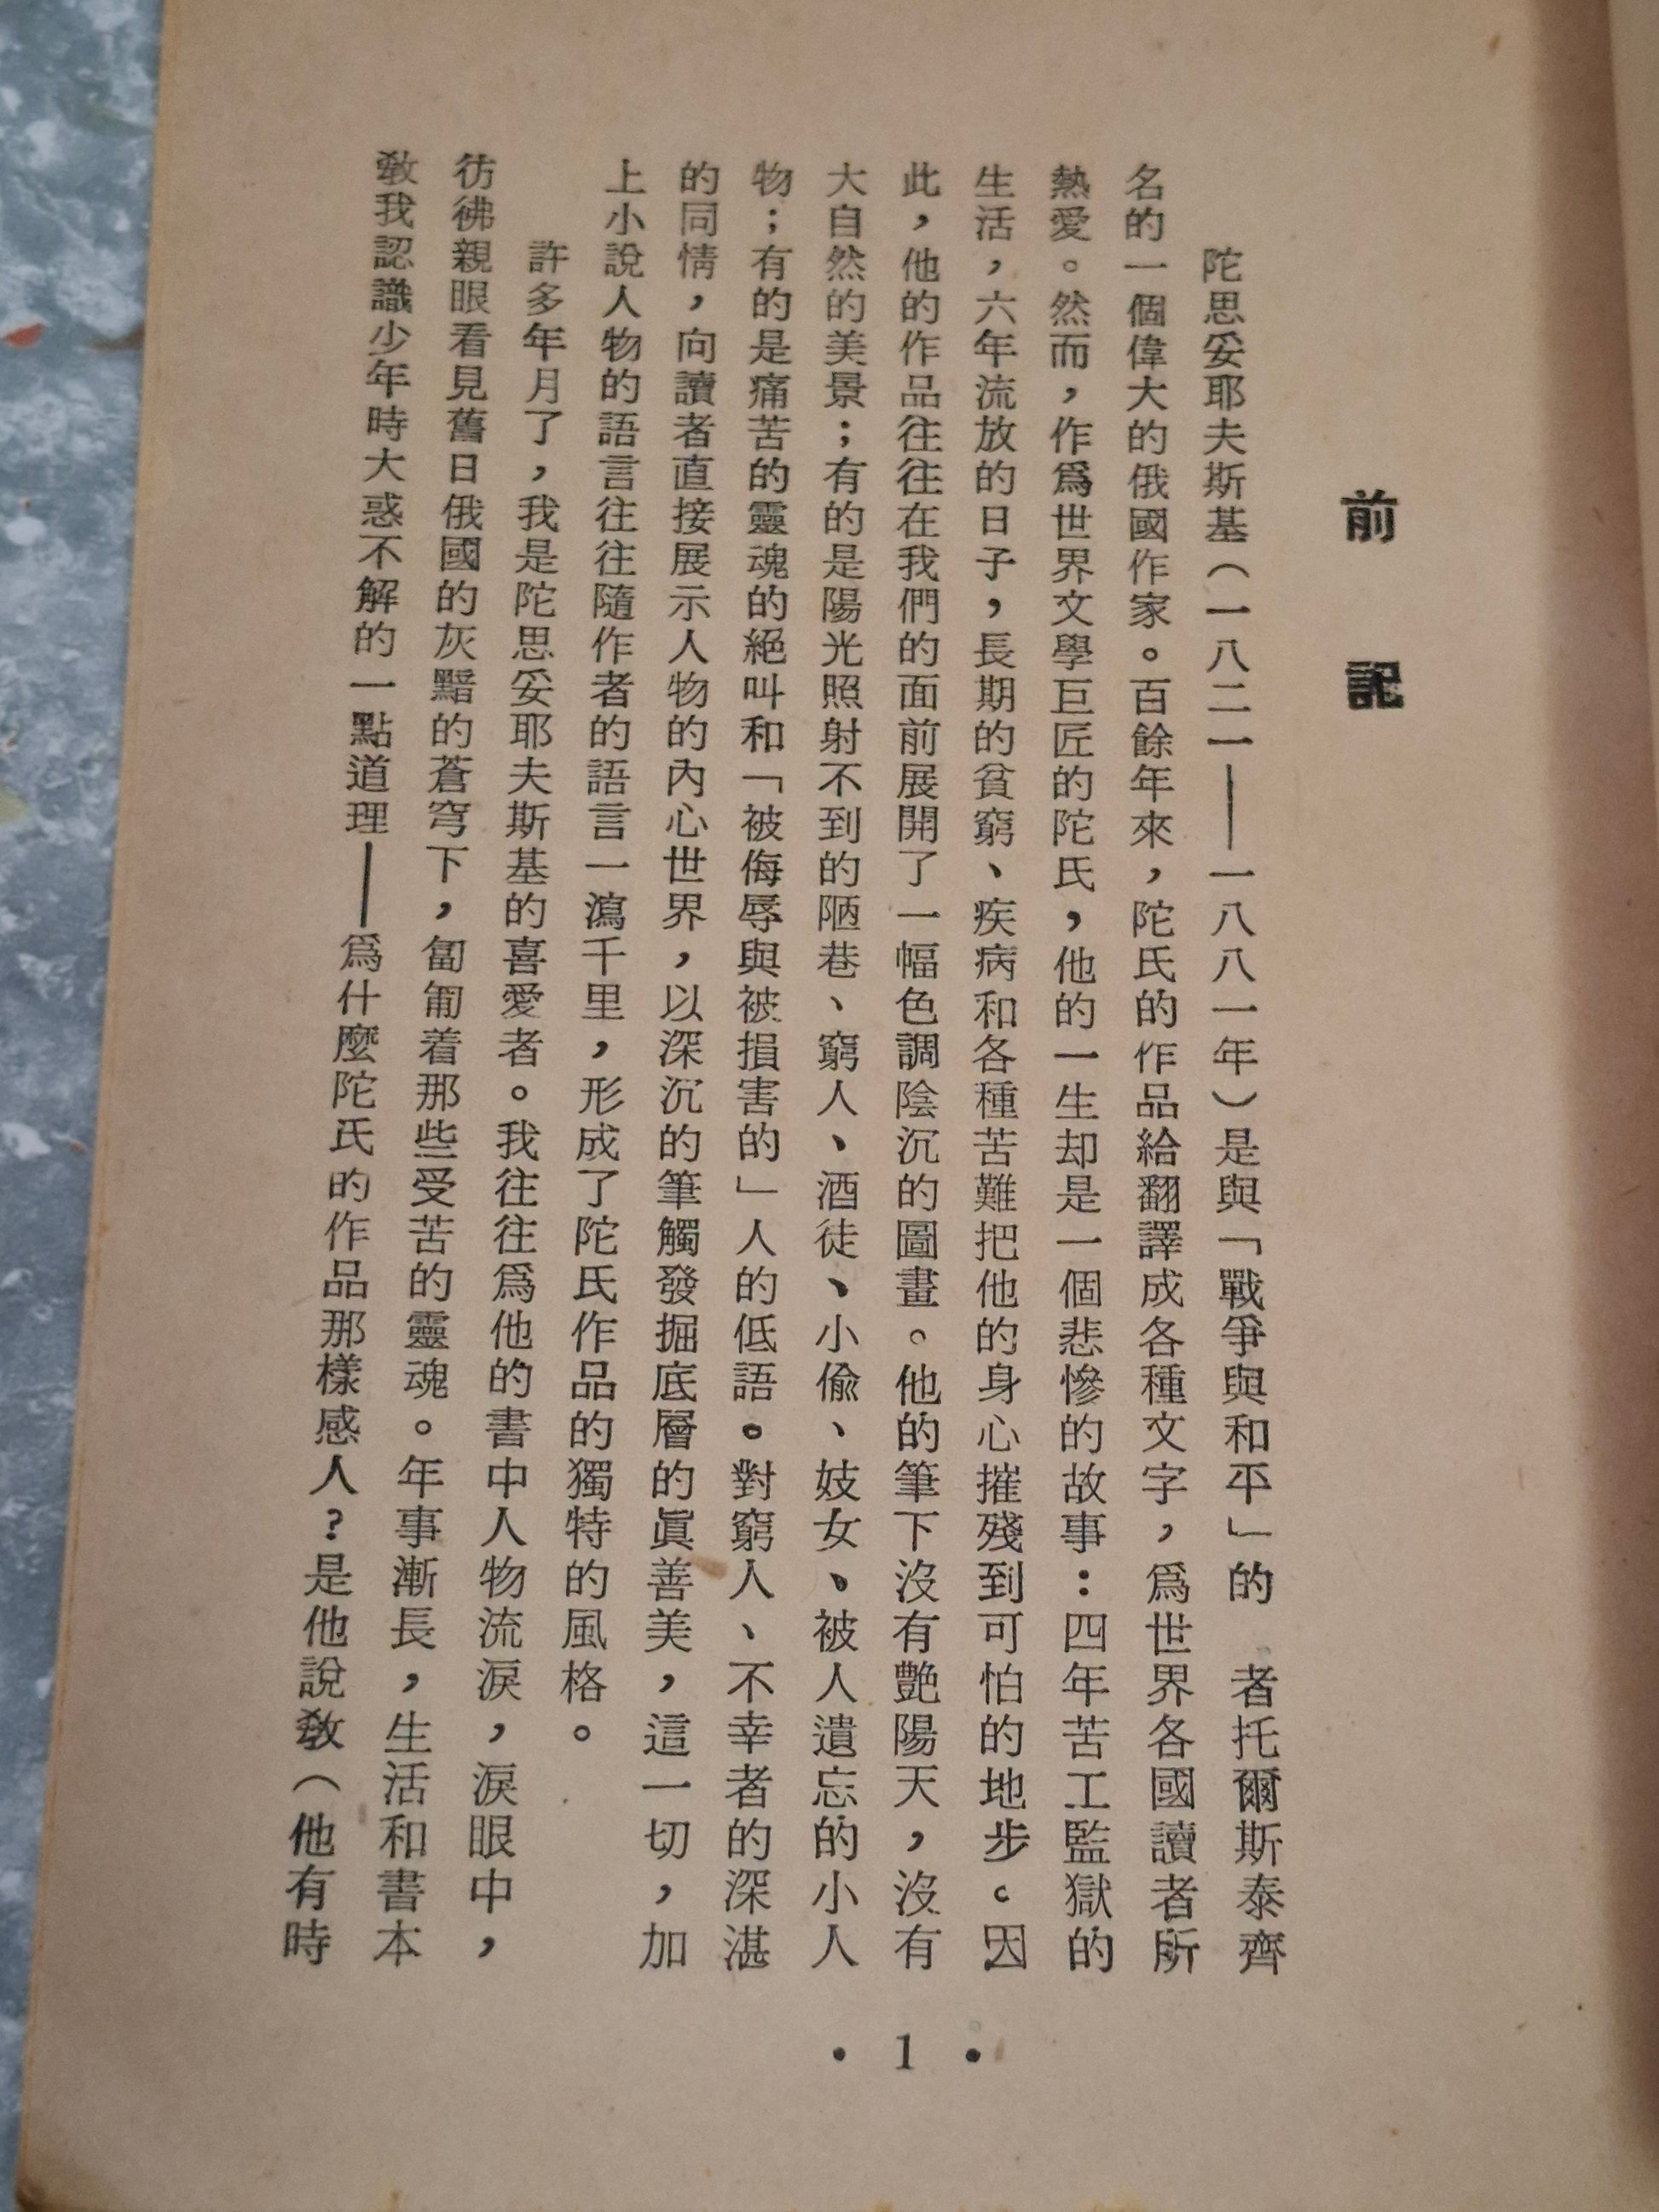 前記
陀思妥耶夫斯基（一八二一——一八八一年）是與「戰爭與和平」的　者托爾斯泰齊
名的一個偉大的俄國作家。百餘年來，陀氏的作品給翻譯成各種文字，爲世界各國讀者所
熱愛。然而，作爲世界文學巨匠的陀氏，他的一生却是一個悲慘的故事：四年苦工監獄的
生活，六年流放的日子，長期的貧窮、疾病和各種苦難把他的身心摧殘到可怕的地步。因
此，他的作品往往在我們的面前展開了一幅色調陰沉的圖畫。他的筆下沒有艷陽天，沒有
大自然的美景；有的是陽光照射不到的陋巷、窮人、酒徒、小偸、妓女、被人遺忘的小人
物；有的是痛苦的靈魂的絕叫和「被侮辱與被損害的」人的低語。對窮人、不幸者的深湛
的同情，向讀者直接展示人物的內心世界，以深沉的筆觸發掘底層的眞善美，這一切，加
上小說人物的語言往往隨作者的語言一瀉千里，形成了陀氏作品的獨特的風格。
許多年月了，我是陀思妥耶夫斯基的喜愛者。我往往爲他的書中人物流淚，淚眼中，
彷彿親眼看見舊日俄國的灰黯的蒼穹下，匍匐着那些受苦的靈魂。年事漸長，生活和書本
敎我認識少年時大惑不解的一點道理——爲什麼陀氏的作品那樣感人？是他說敎（他有時
• 1 •